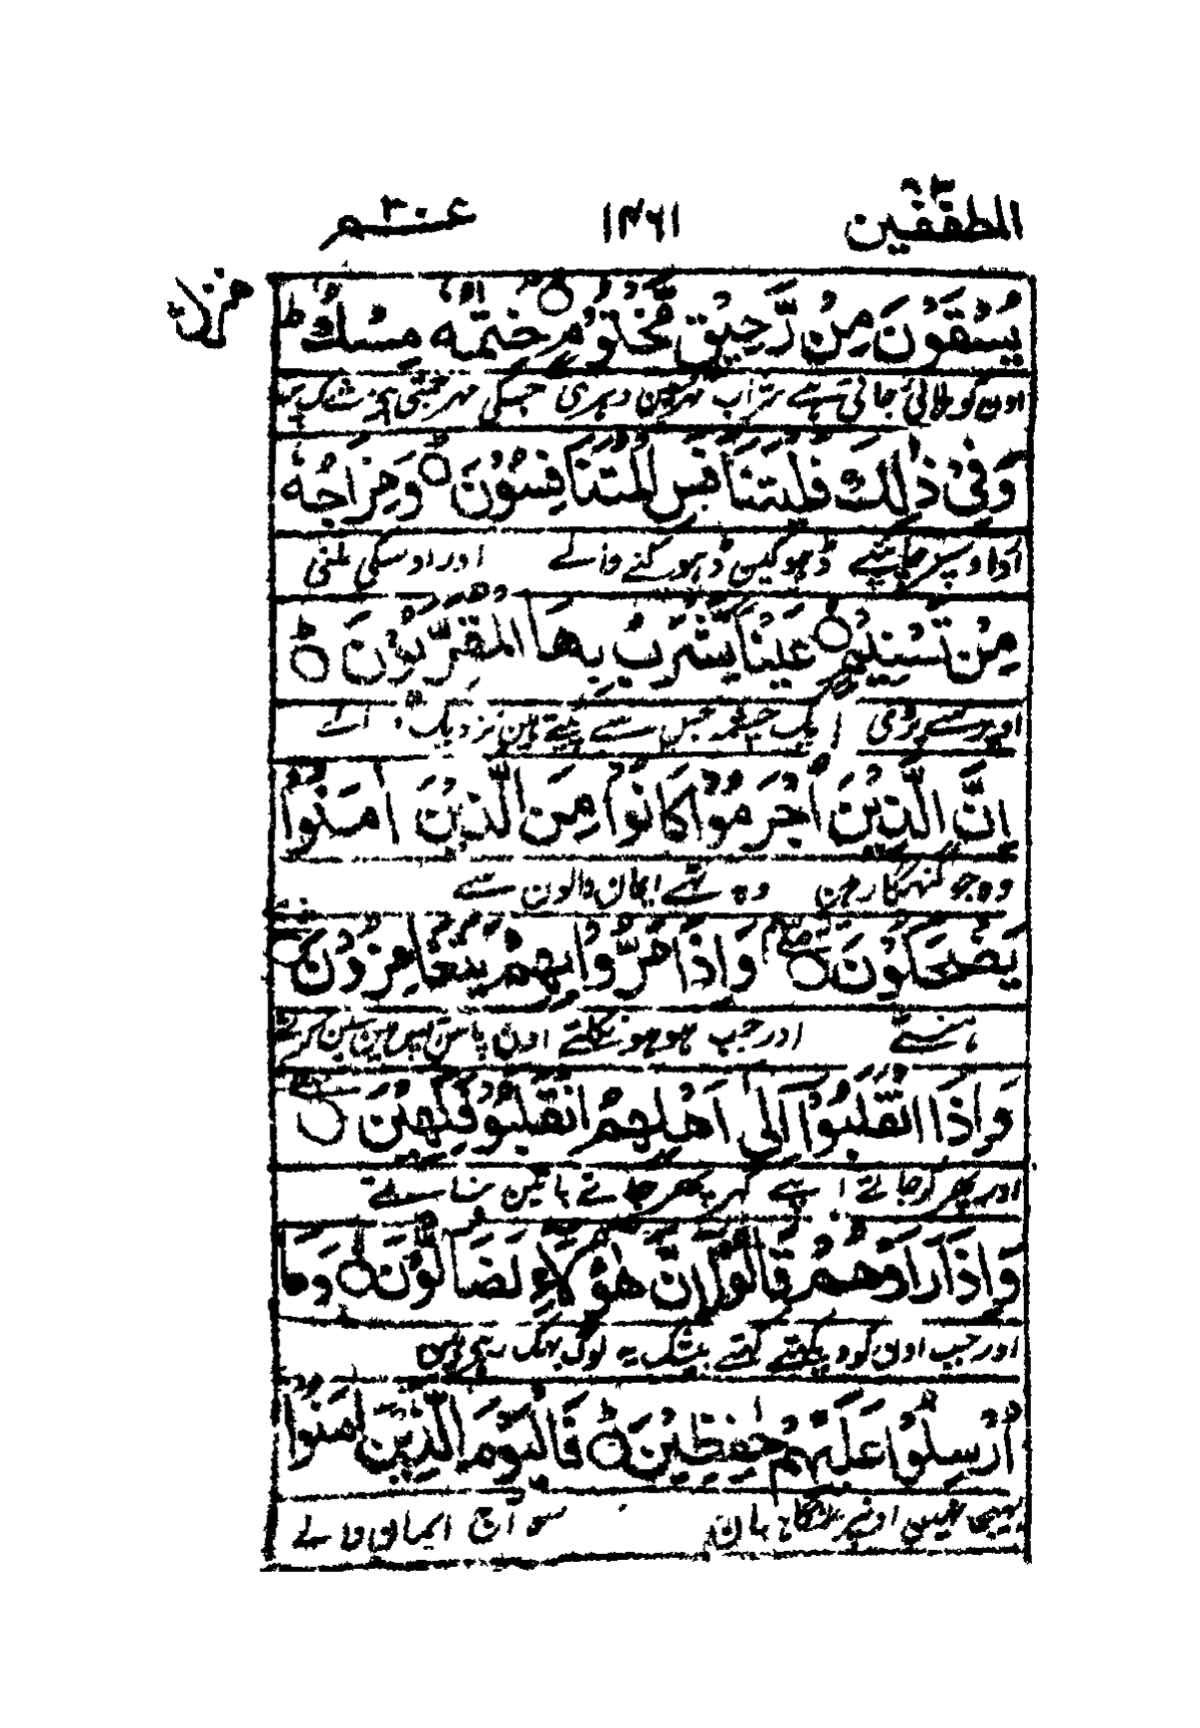 المطففین ۱۴۶۱ عم ۳۰
منزل
یُسْقَوْنَ مِنْ رَّحِیْقٍ مَّخْتُوْمٍ خِتٰمُهٗ مِسْكٌ ط
اون کو پلائی جاتی ہے شراب مہر جسکی مہر جمتی
وَفِیْ ذٰلِكَ فَلْیَتَنَافَسِ الْمُتَنَافِسُوْنَ وَمِزَاجُهٗ
ڈہوکین ڈہوکنے والے اور اوسکی ملنی
مِنْ تَسْنِیْمٍ عَیْنًا یَّشْرَبُ بِهَا الْمُقَرَّبُوْنَ ط
اوپر سے پڑی ایک چشمہ جس سے پیتے ہین نزدیک
اِنَّ الَّذِیْنَ اَجْرَمُوْا كَانُوْا مِنَ الَّذِیْنَ اٰمَنُوْا
وہ جو گنہگار ہین وہ تھے ایمان والون سے
یَضْحَكُوْنَ وَاِذَا مَرُّوْا بِهِمْ یَتَغَامَزُوْنَ
ہنستے اور جب ہو نکلتے اون پاس آپس مین سین کرتے
وَاِذَا انْقَلَبُوْٓا اِلٰٓی اَهْلِهِمُ انْقَلَبُوْا فَكِهِیْنَ
اور پھر کر جاتے اپنے گھر پھر جاتے باتین بناتے
وَاِذَا رَاَوْهُمْ قَالُوْٓا اِنَّ هٰٓؤُلَآءِ لَضَآلُّوْنَ وَمَآ
اور جب اون کو دیکھتے کہتے بیشک یہ لوگ بہک رہی ہین
اُرْسِلُوْا عَلَیْهِمْ حٰفِظِیْنَ ط فَالْیَوْمَ الَّذِیْنَ اٰمَنُوْا
نہین اونپر سو آج ایمان والے